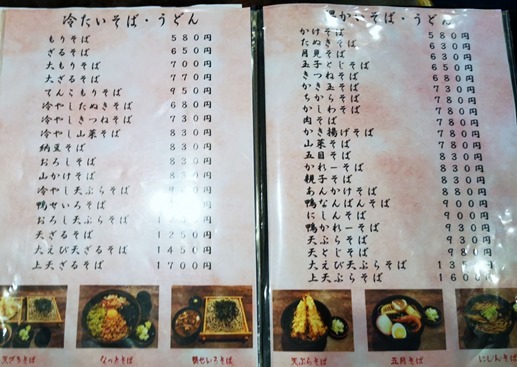 冷たいそば・うどん
もりそば 580円
ざるそば 650円
大もりそば 700円
大ざるそば 770円
てんこもりそば 950円
冷やしたぬきそば 680円
冷やしきつねそば 730円
冷やし山菜そば 830円
納豆そば 830円
おろしそば 830円
山かけそば 830円
冷やし天ぷらそば
鴨せいろそば
おろし天ぷらそば
天ざるそば 1250円
大えび天ざるそば 1450円
上天ざるそば 1700円
天ざるそば
なっとそば
鴨せいろそば
かいそば・うどん
かけそば 580円
たぬきそば 630円
月見そば 630円
玉子とじそば 650円
きつねそば 680円
かき玉そば 730円
ちからそば 780円
かしわそば 780円
肉そば 780円
かき揚げそば 780円
山菜そば 780円
五目そば 830円
かれーそば 830円
親子そば 830円
あんかけそば 880円
鴨なんばんそば 900円
にしんそば 900円
鴨かれーそば 930円
天ぷらそば 930円
天とじそば 980円
大えび天ぷらそば
上天ぷらそば 1600円
天ぷらそば
五目そば
にしんそば